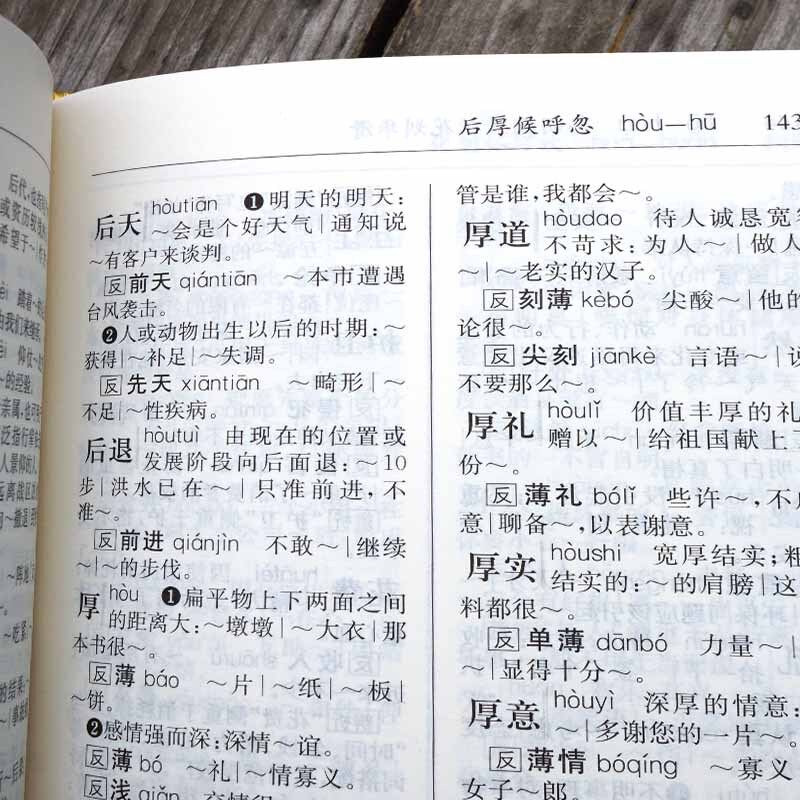 后厚候呼忽 hòu—hū 143
后天 hòutiān ❶明天的明天:
～会是个好天气|通知说
～有客户来谈判。
反前天 qiántiān ～本市遭遇
台风袭击。
❷人或动物出生以后的时期:～
获得|～补足|～失调。
反先天 xiāntiān ～畸形|～
不足|～性疾病。
后退 hòutuì 由现在的位置或
发展阶段向后面退:～10
步|洪水已在～|只准前进,不
准～。
反前进 qiánjìn 不敢～|继续
～|～的步伐。
厚 hòu ❶扁平物上下两面之间
的距离大:～墩墩|～大衣|那
本书很～。
反薄 báo ～片|～纸|～板|
～饼。
❷感情强而深:深情～谊。
反薄 bó ～礼|～情寡义。
反浅 qiǎn 交情很
管是谁,我都会～。
厚道 hòudao 待人诚恳宽
不苛求:为人～|做人
～|～老实的汉子。
反刻薄 kèbó 尖酸～|他的
论很～。
反尖刻 jiānkè 言语～|说
不要那么～。
厚礼 hòulǐ 价值丰厚的礼
赠以～|给祖国献上
份～。
反薄礼 bólǐ 些许～,不
意|聊备～,以表谢意。
厚实 hòushi 宽厚结实;粗
结实的:～的肩膀|这
料都很～。
反单薄 dānbó 力量～|
～|显得十分～。
厚意 hòuyì 深厚的情意:
～|多谢您的一片～。
反薄情 bóqíng ～寡义
女子|～郎。